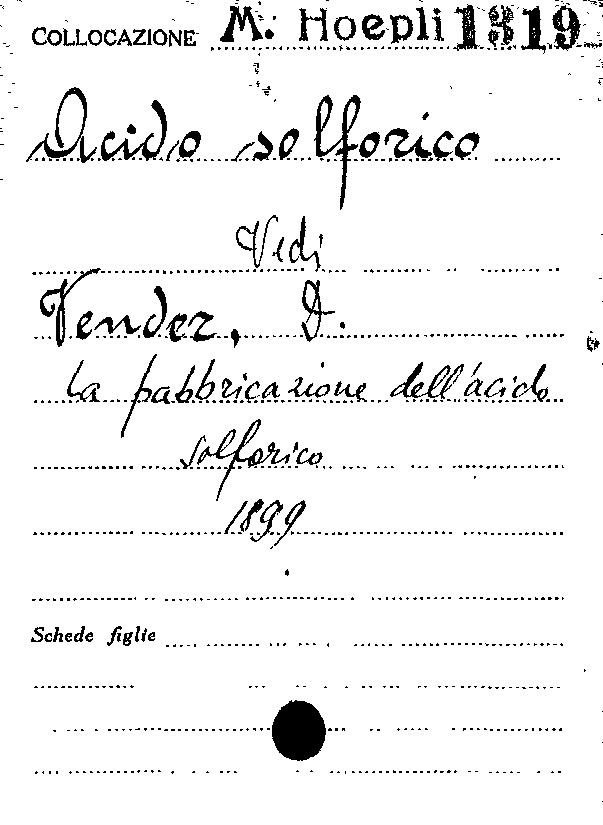 COLLOCAZIONE M. Hoepli 1319
Acido solforico
Vedi
Vender, D.
La fabbricazione dell'acido
solforico
1899
Schede figlie